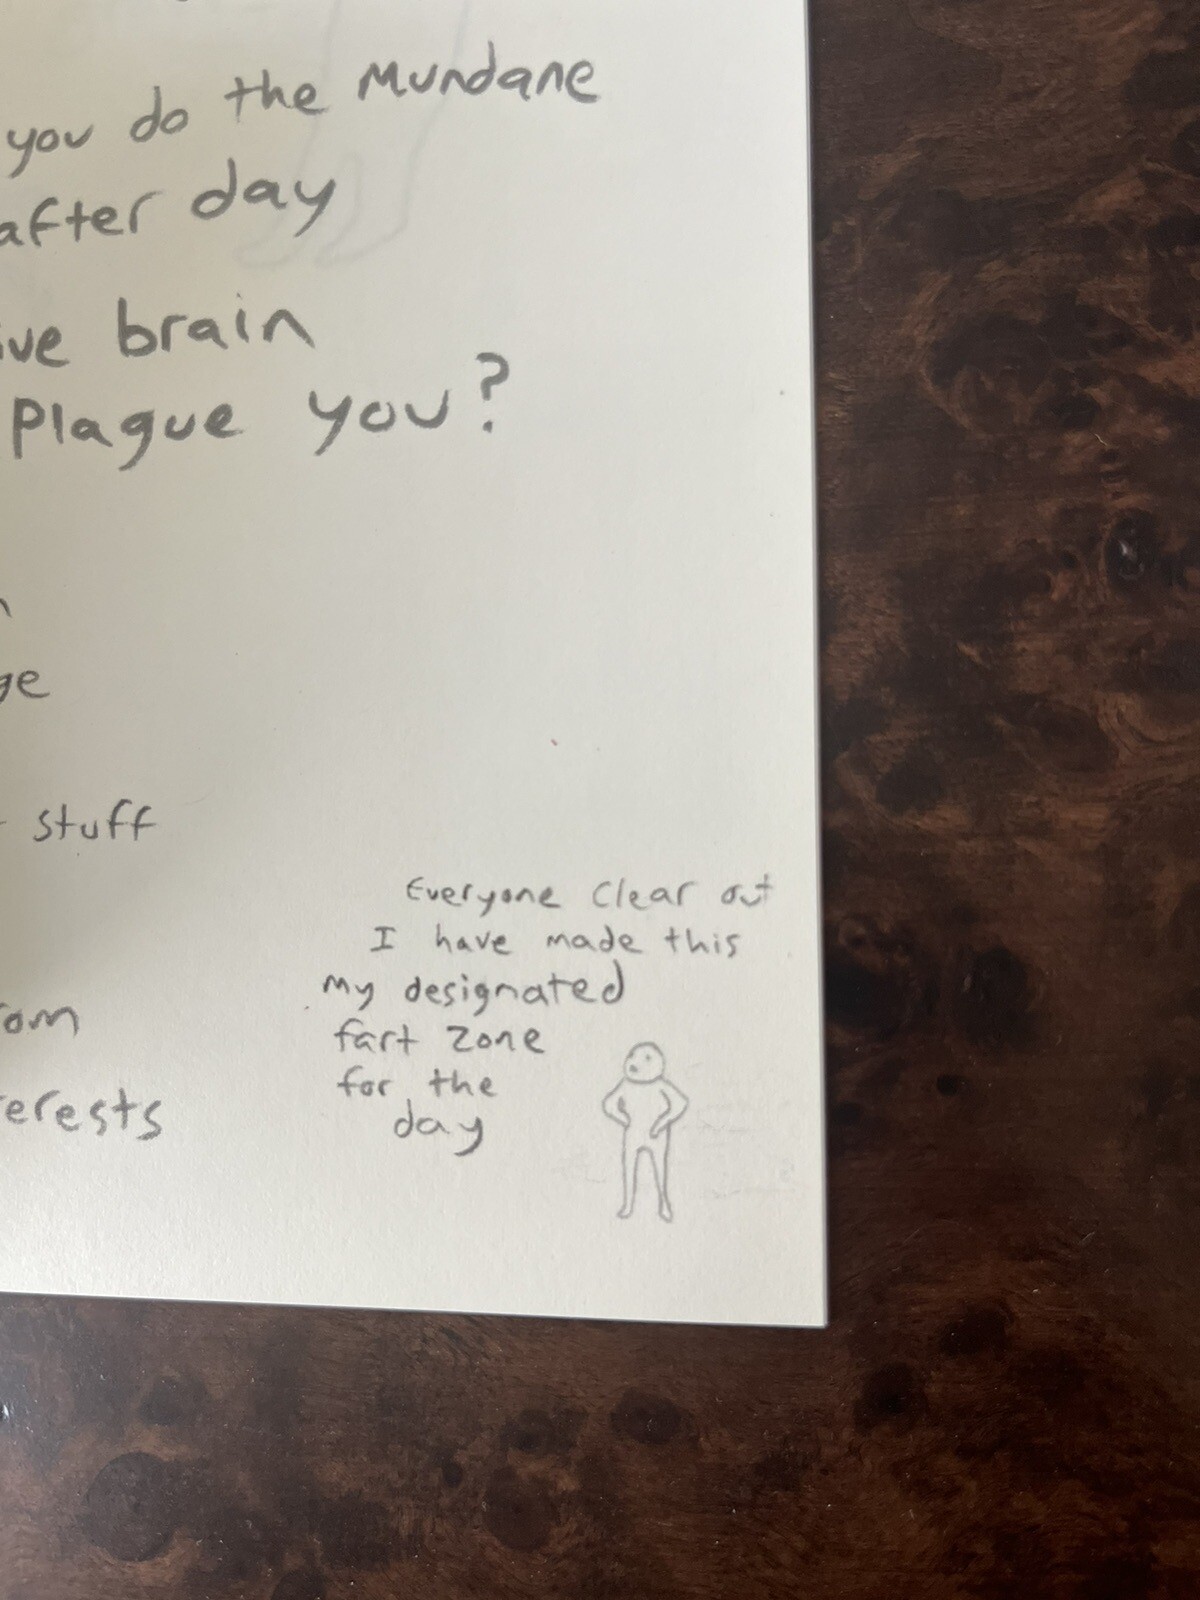 you do the Mundane
after day
brain
Plague you?
stuff
Everyone Clear out
I have made this
My designated
fart zone
for the
day